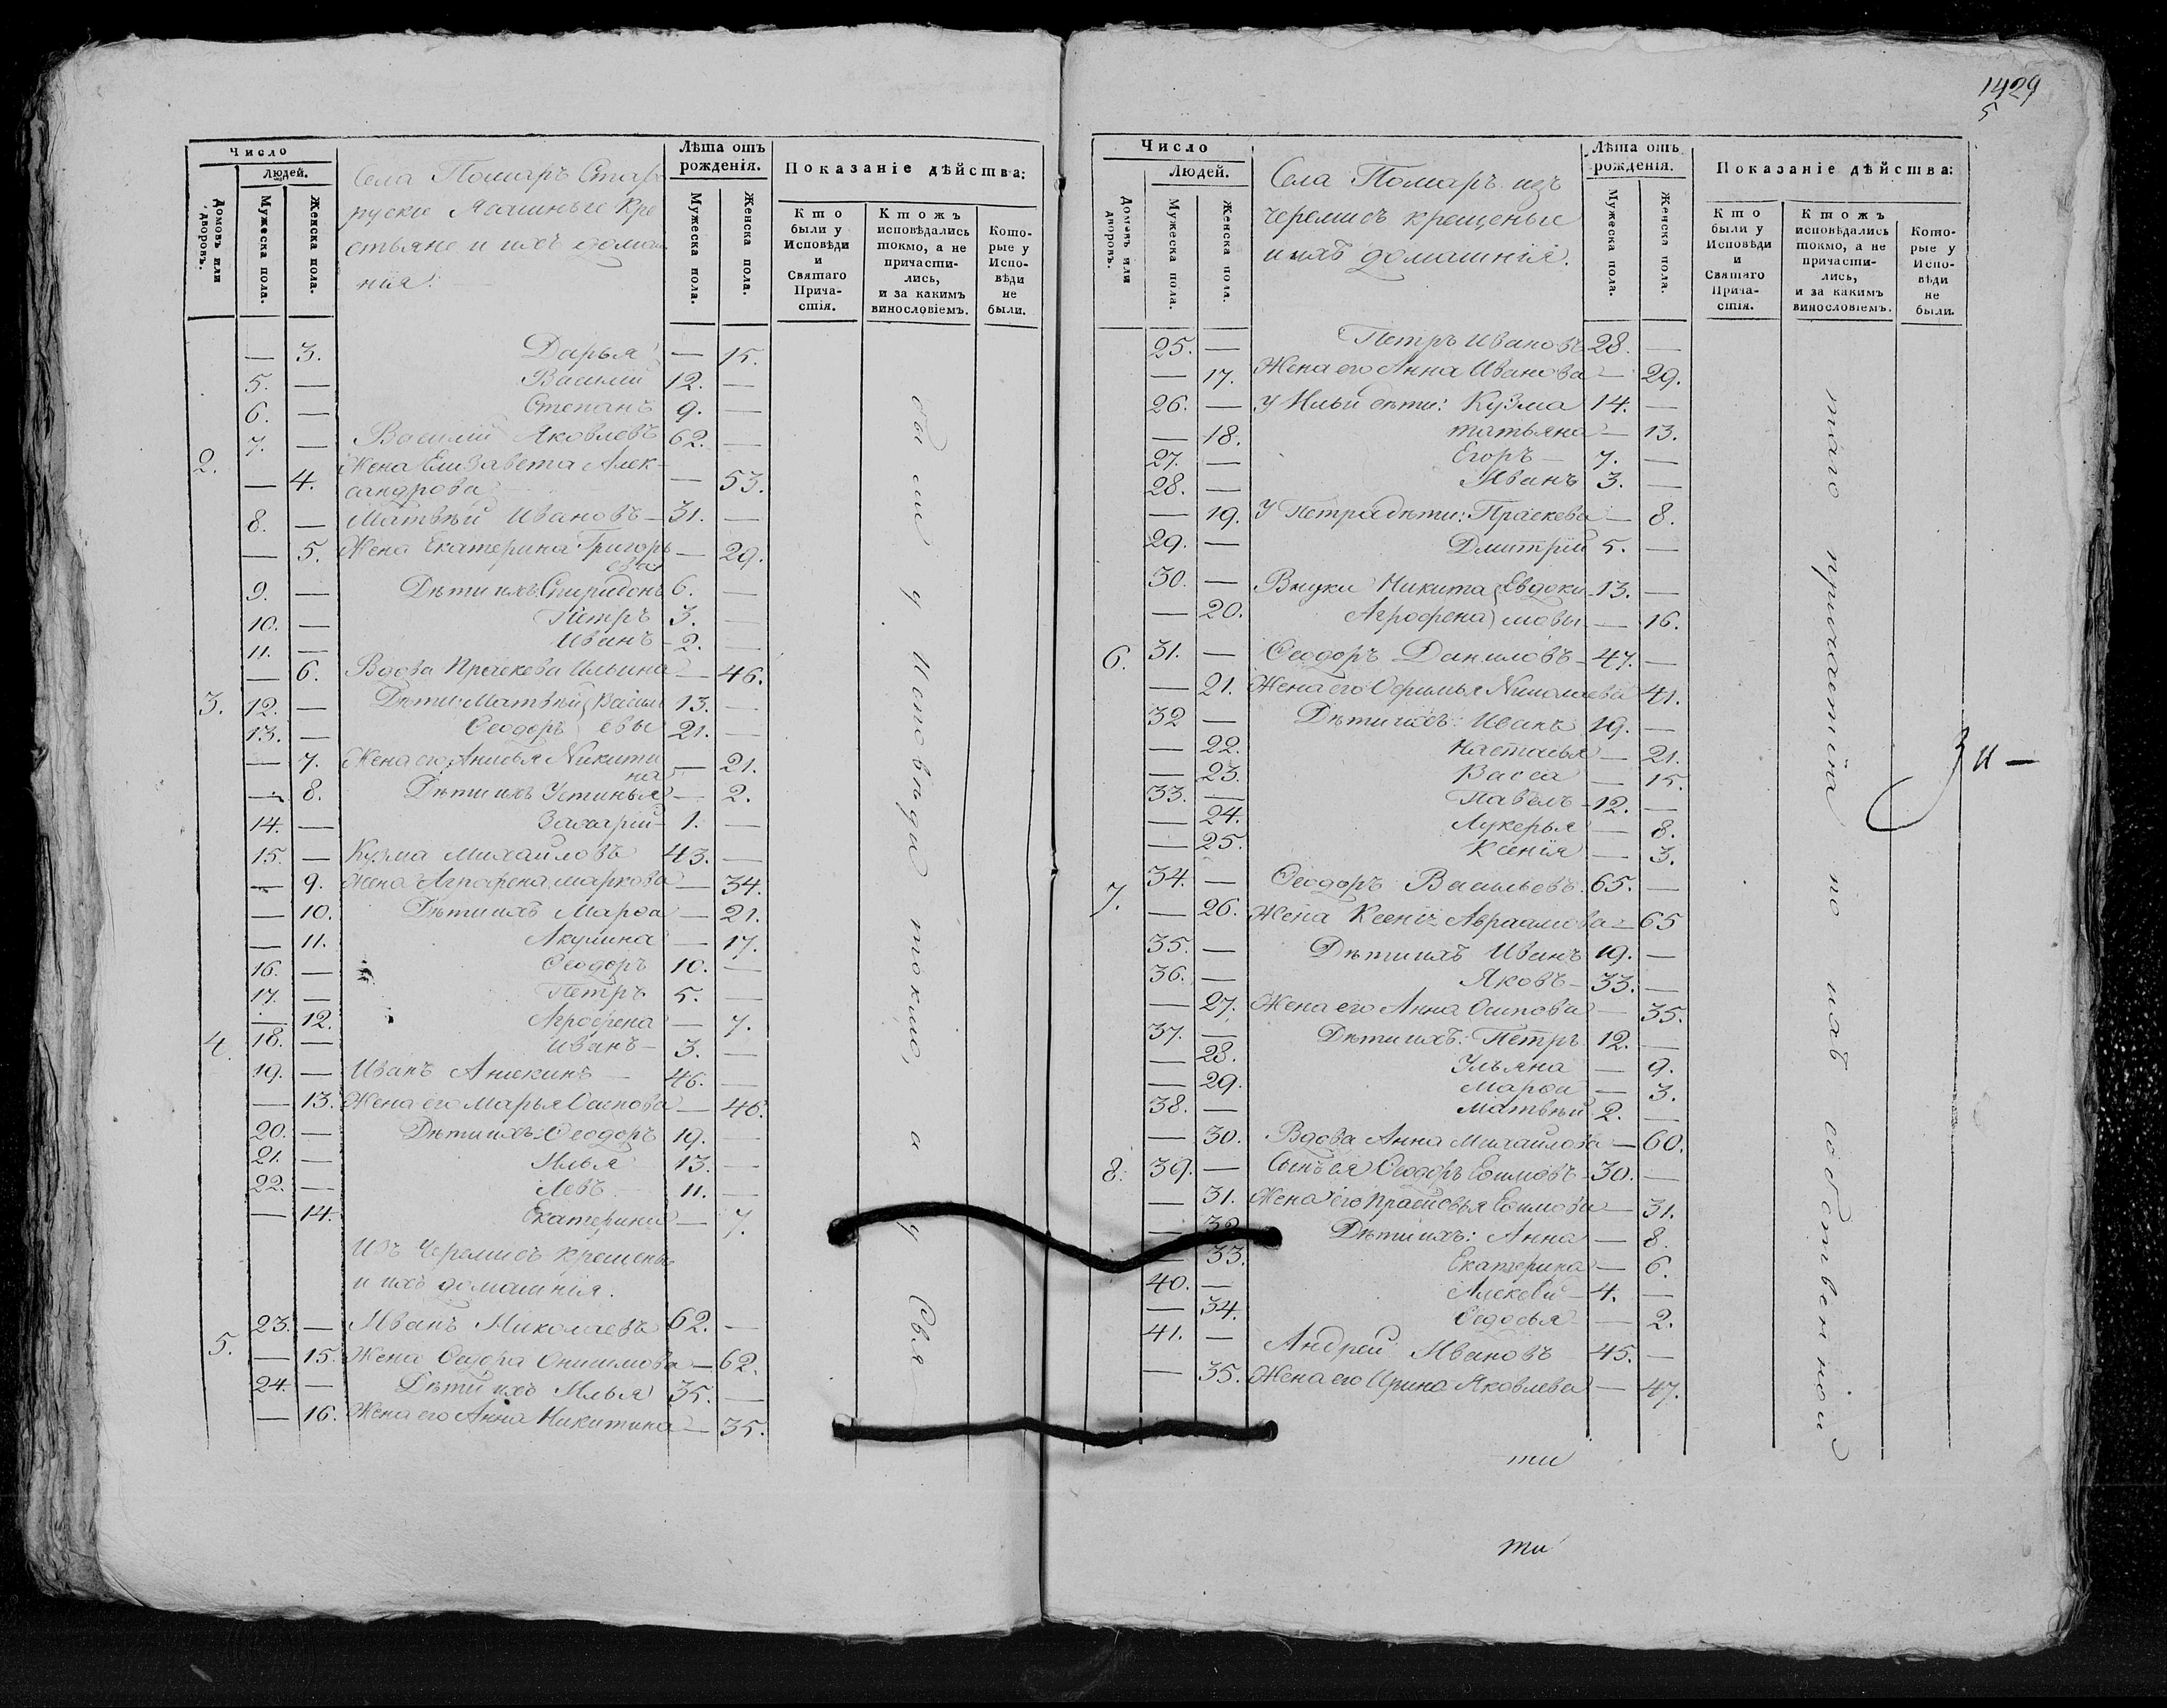 Число
Людей.
Домовъ или дворовъ.
Мужеска пола.
Женска пола.
Села Помаръ Старо
руские Ясашные Кре
стьяне и ихъ домаш
нія:
Лѣта отъ рожденія.
Мужеска пола.
Женска пола.
Показаніе дѣйства:
Кто были у Исповѣди и Святаго Прича-стія.
Ктожъ исповѣдались токмо, а не причасти-лись, и за какимъ винословіемъ.
Кото-рые у Испо-вѣди не были.
— 3. Дарья — 15.
5. — Василій 12. —
6. — Степанъ 9. —
2. 7. — Василій Яковлевъ 62. —
— 4. Жена Елизавета Алек- — 53.
сандрова
8. — Матвѣй Ивановъ — 31. —
— 5. Жена Екатерина Григорь — 29.
ева
9. — Дѣти ихъ Спиридонъ 6. —
10. — Петръ 3. —
11. — Иванъ — 2. —
— 6. Вдова Праскева Ильина — 46.
3. 12. — Дѣти: Матвѣй (Василь 13. —
13. — Ѳеодоръ) евы 21. —
— 7. Жена его Анисья Никити — 21.
на
— 8. Дѣти ихъ Устинья — 2.
14. — Захарій — 1. —
15. — Кузма Михайловъ 43. —
— 9. Жена Агрофена Маркова — 34.
— 10. Дѣти ихъ Марѳа — 21.
— 11. Акулина — 17.
16. — Ѳеодоръ 10. —
17. — Петръ 5. —
— 12. Агрофена — 7.
4. 18. — Иванъ — 3. —
19. — Иванъ Аникинъ — 46. —
— 13. Жена его Марья Осипова — 46.
20. — Дѣти ихъ: Ѳеодоръ 19. —
21. — Илья 13. —
22. — Левъ 11. —
— 14. Екатерина — 7.
Изъ Черемисъ крещеные
и ихъ домашнія.
5. 23. — Иванъ Николаевъ 62. —
— 15. Жена Ѳедора Онисимова — 62.
24. — Дѣти ихъ Илья 35. —
— 16. Жена его Анна Никитина — 35.
были у Исповѣди токмо, а у Свя
1429
5
Число
Людей.
Домовъ или дворовъ.
Мужеска пола.
Женска пола.
Села Помаръ изъ
черемисъ крещеные
и ихъ домашнія.
Лѣта отъ рожденія.
Мужеска пола.
Женска пола.
Показаніе дѣйства:
Кто были у Исповѣди и Святаго Прича-стія.
Ктожъ исповѣдались токмо, а не причасти-лись, и за какимъ винословіемъ.
Кото-рые у Испо-вѣди не были.
25. — Петръ Ивановъ 28. —
— 17. Жена его Анна Иванова — 29.
26. — У Ильи дѣти: Кузма 14. —
— 18. Татьяна — 13.
27. — Егоръ — 7. —
28. — Иванъ 3. —
— 19. У Петра дѣти: Праскева — 8.
29. — Дмитрій 5. —
30. — Внуки Никита (Евдоки 13. —
— 20. Агрофена) мовы — 16.
6. 31. — Ѳеодоръ Даниловъ — 47. —
— 21. Жена его Ѳефимья Николаева 41.
32 — Дѣти ихъ: Иванъ 19. —
— 22. Настасья — 21.
— 23. Васса — 15.
33. — Павелъ — 12. —
— 24. Лукерья — 8.
— 25. Ксенія — 3.
7. 34. — Ѳеодоръ Васильевъ 65. —
— 26. Жена Ксенія Авраамова — 65
35. — Дѣти ихъ Иванъ 19. —
36. — Яковъ — 33. —
— 27. Жена его Анна Осипова — 35.
37. — Дѣти ихъ: Петръ 12. —
— 28. Ульяна — 9.
— 29. Марѳа — 3.
38. — Матвѣй 2. —
— 30. Вдова Анна Михайлова — 60.
8. 39. — Сынъ ея Ѳеодоръ Еѳимовъ — 30. —
— 31. Жена его Прасковья Еѳимова — 31.
— 32. Дѣти ихъ: Анна — 8.
— 33. Екатерина — 6.
40. — Алексѣй — 4. —
— 34. Ѳедосья — 2.
41. — Андрей Ивановъ 45. —
— 35. Жена его Ирина Яковлева — 47.
таго причастія по ихъ собственной
ти
ти